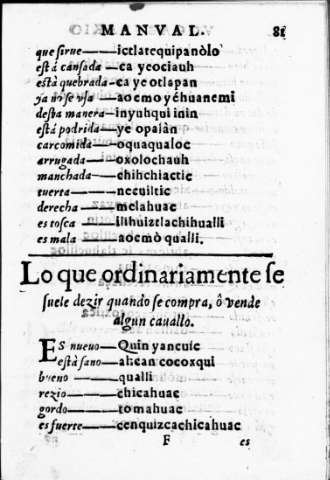 MANVAL. 81
que sirue——ictlatequipanòlo
està cansada—ca yeociauh
està quebrada-ca ye otlapan
ya no se vsa—aocmo yéhuanemi
desta manera-inyuhqui inin
està podrida—ye opalàn
carcomida—oquaqualoc
arrugada——oxolochauh
manchada—chihchiactic
tuerta———necuiltic
derecha——melahuac
es tosca——ilihuiztlachihualli
es mala——aocmò qualli.
Lo que ordinariamente se
suele dezir quando se compra, ò vende
algun cauallo.
ES nueuo—Quin yancuic
està sano—ahcan cocoxqui
bueno——qualli
rezio———chicahuac
gordo———tomahuac
es fuerte——cenquizcachicahuac
F es